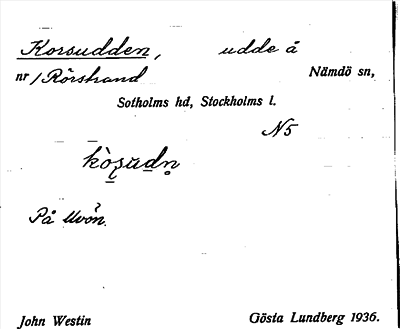 Korsudden, udde å
nr 1 Rörstrand Nämdö sn,
Sotholms hd, Stockholms l.
N5
På Uvön.
John Westin Gösta Lundberg 1936.